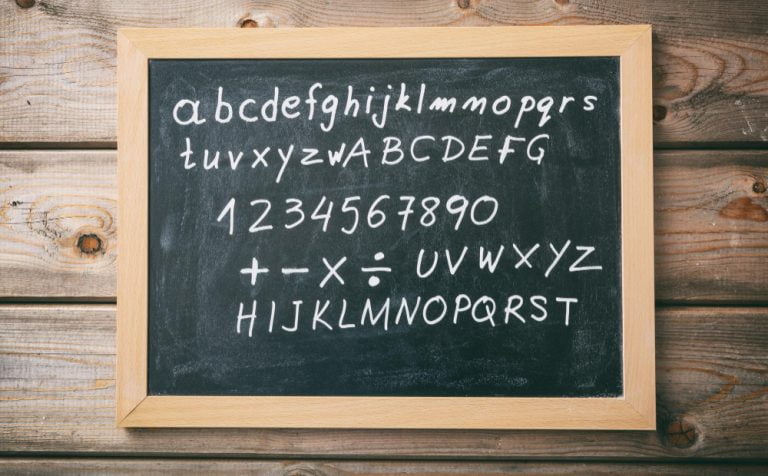 abcdefghijklmnopqrs
tuvxyzwABCDEFG
1234567890
+ − × ÷ UVWXYZ
HIJKLMNOPQRST